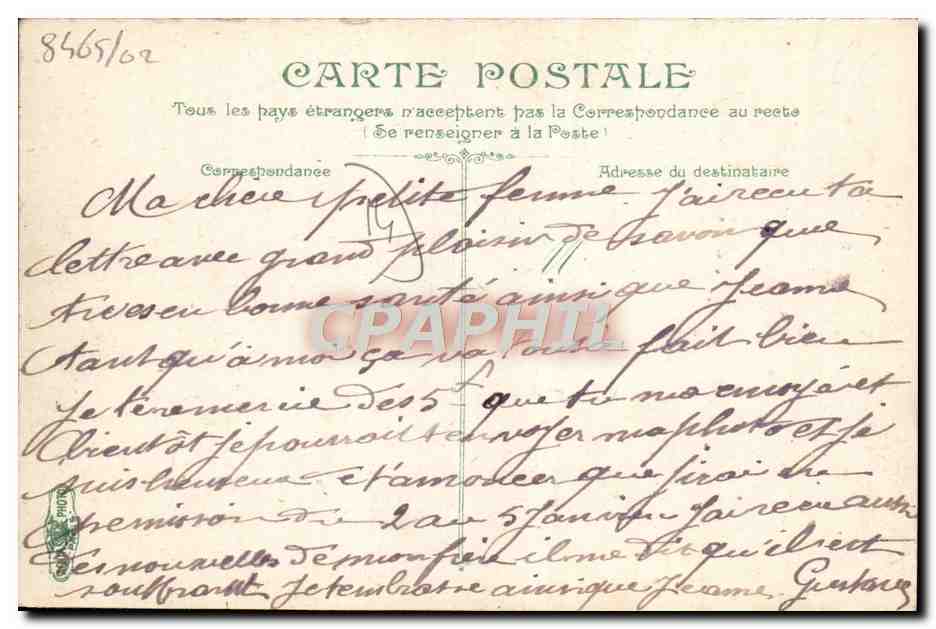 8465/02
CARTE POSTALE
Tous les pays étrangers n'acceptent pas la Correspondance au recto
(Se renseigner à la Poste)
Correspondance
Adresse du destinataire
14
Ma chere petite femme J'ai recu ta
lettre avec grand plaisir de savoir que
tu es en bonne santé ainsi que Jeanne
tant qu'à moi ça va tout à fait bien
Je te remercie des 5f que tu ma envoyé et
bientôt Je pourrait t'envoyer ma photo et je
suis heureux et'anoncer que j'irai en
permission du 2 au 5 Janvier J'ai recu aussi
des nouvelles de mon frère il me dit qu'il est
souffrant Je t'embrasse ainsi que Jeanne Gustave
CPAPHIL
PHOTO